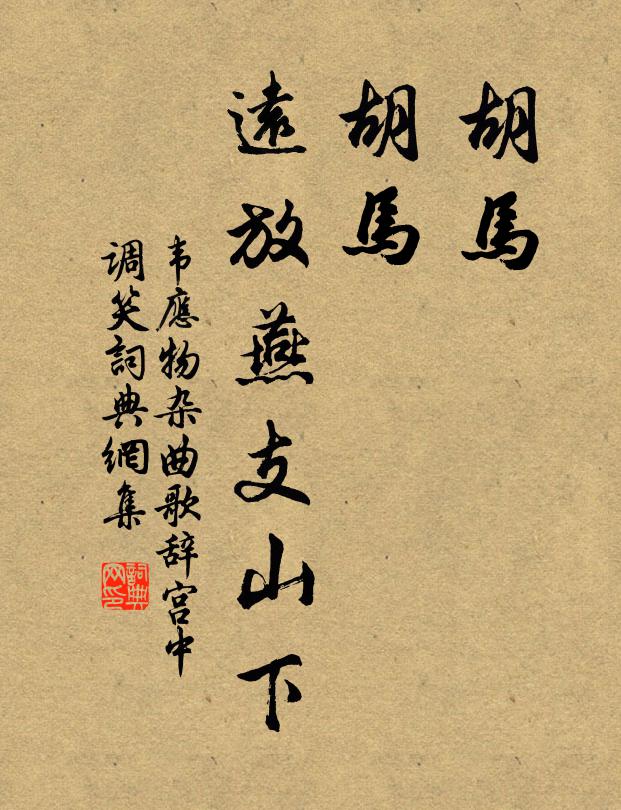 胡馬
胡馬
遠放燕支山下
韦應物杂曲歌辞宫中
调笑詞典網集
詞典網印